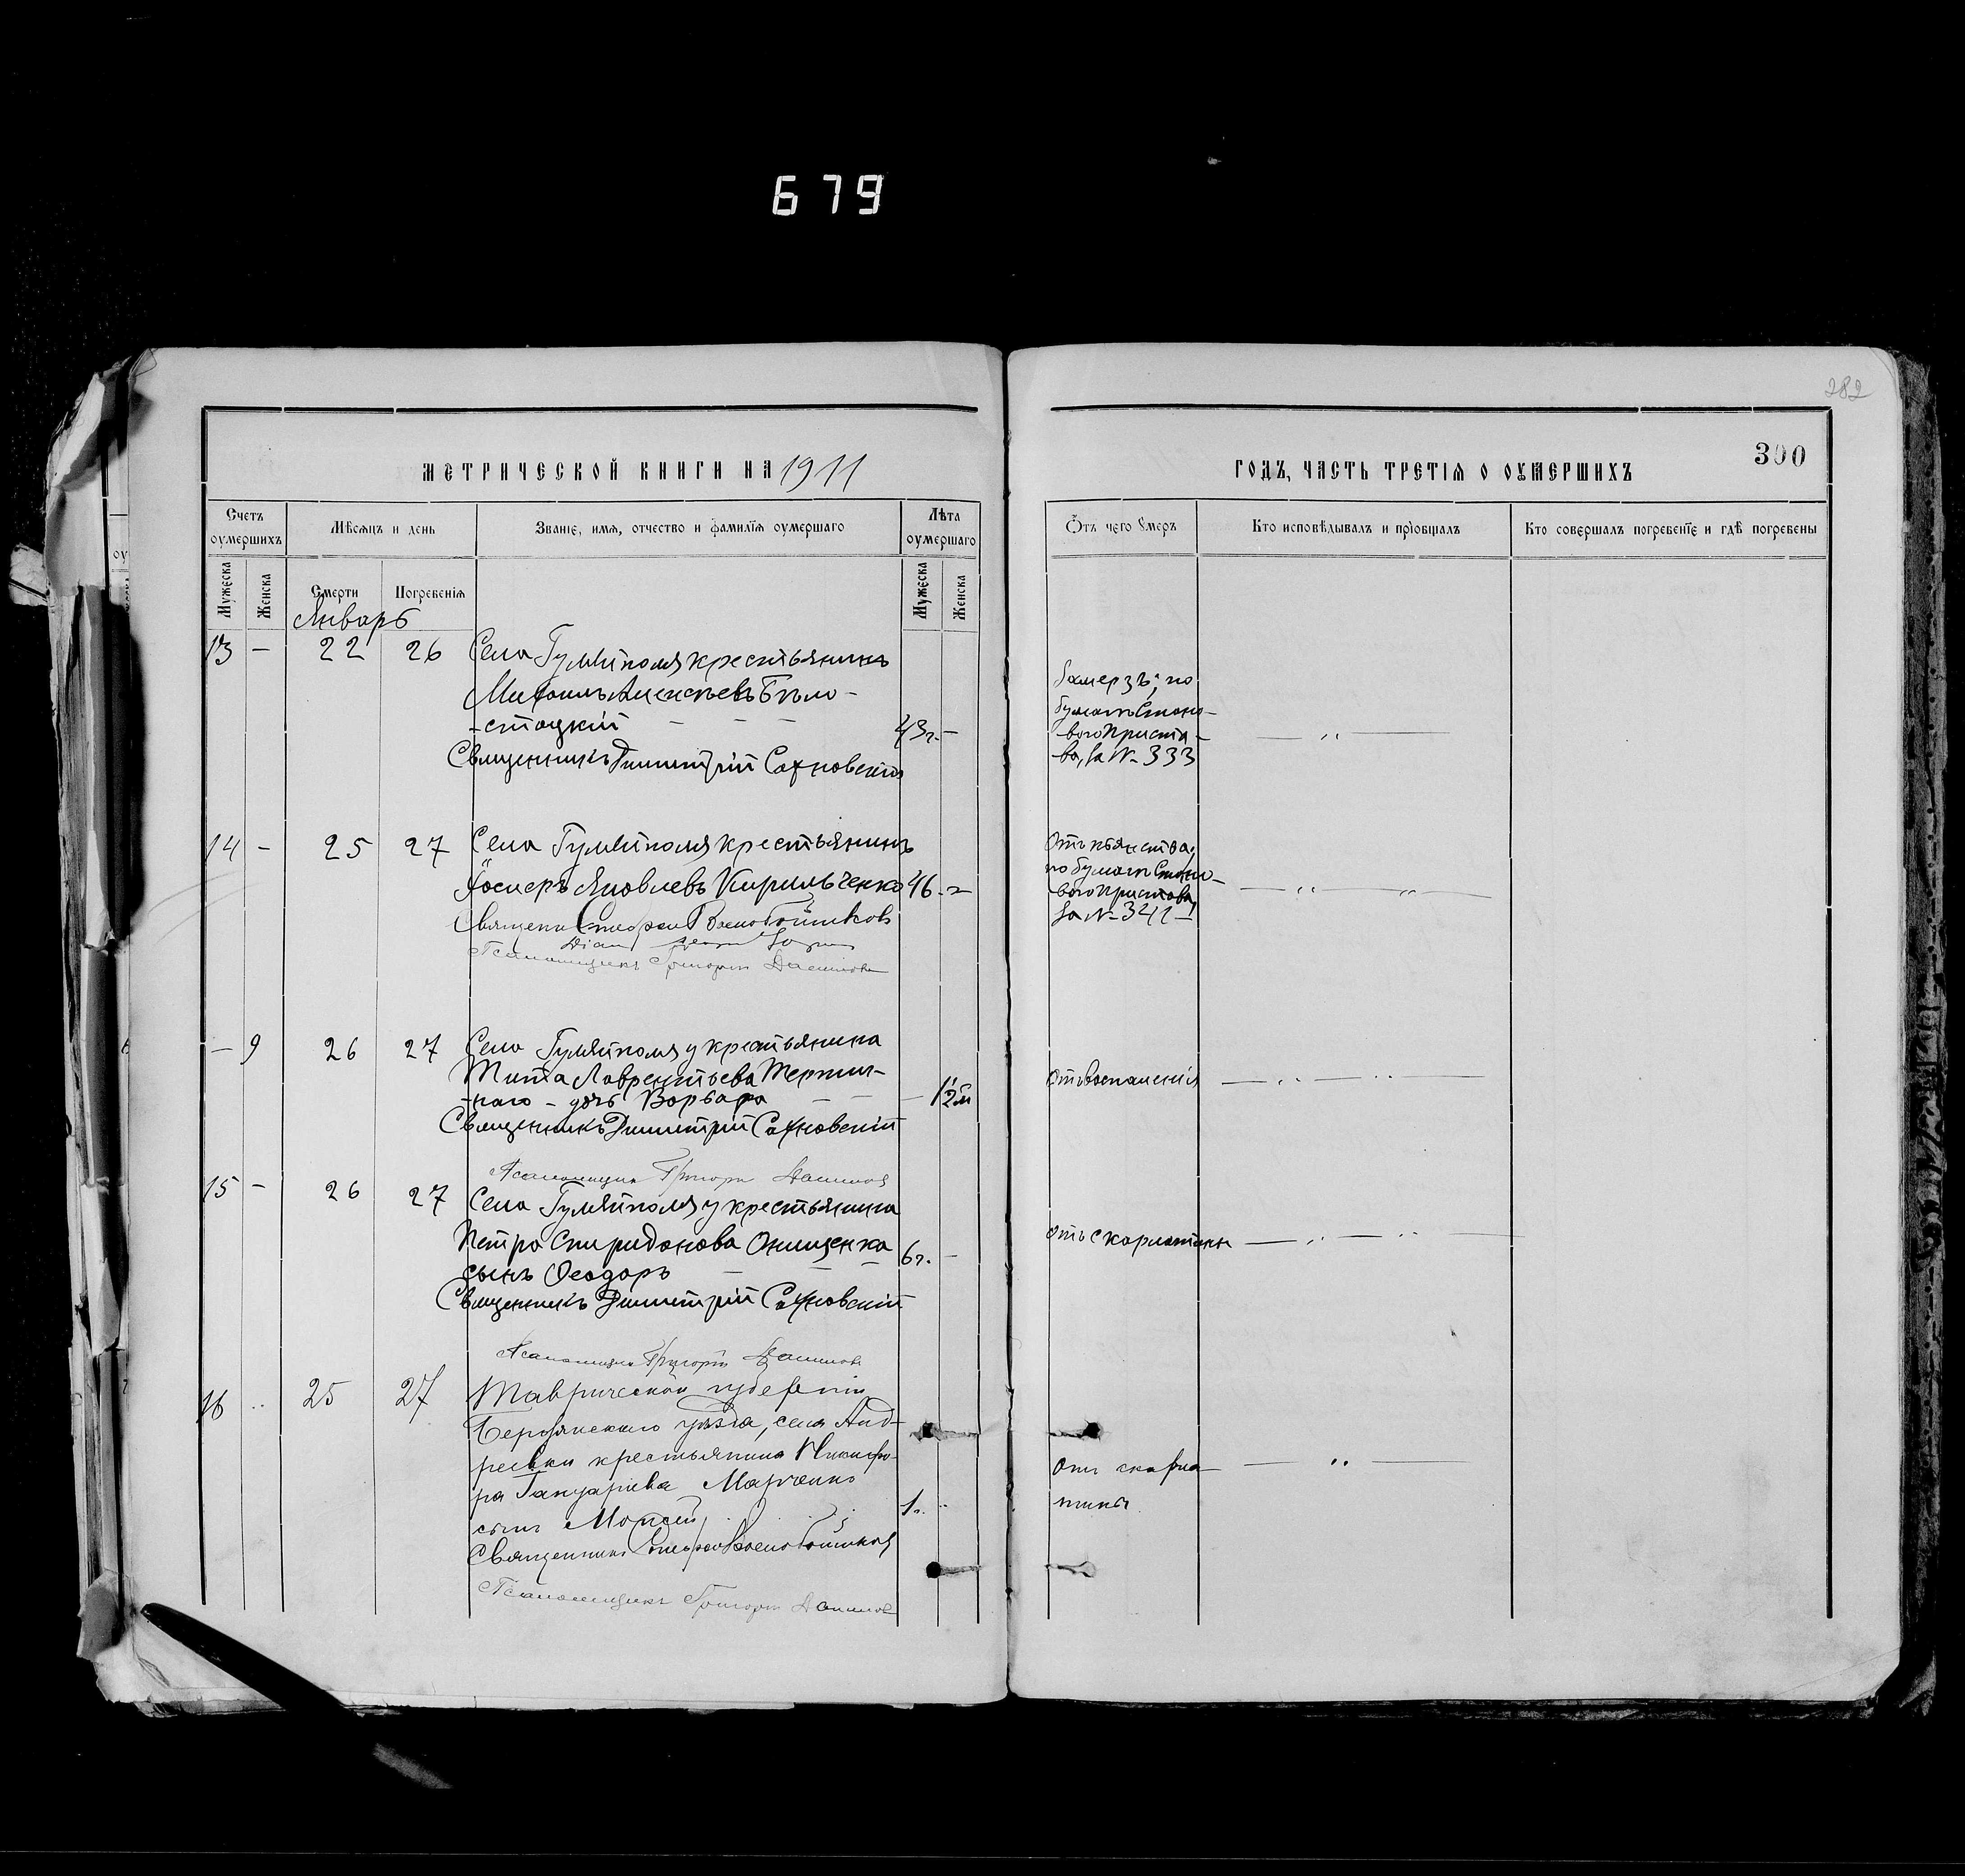 679
282
МЕТРИЧЕСКОЙ КНИГИ НА 1911
ГОДЪ, ЧАСТЬ ТРЕТІЯ О ОУМЕРШИХЪ
300
Счетъ оумершихъ
Мѣсяцъ и день
Званіе, имя, отчество и фамилія оумершаго
Лѣта оумершаго
Отъ чего умеръ
Кто исповѣдывалъ и пріобщалъ
Кто совершалъ погребеніе и гдѣ погребены
Мужеска
Женска
Смерти
Погребенія
Мужеска
Женска
Январь
13 - 22 26 Села Гуляйполя крестьянинъ
Михаилъ Алексѣевъ Бѣло-
-стоцкій - - - 43 г. -
Священникъ Димитрій Сахновскій
Замерзъ; по
бумагѣ Стано-
вого Приста-
ва, за № 333
14 - 25 27 Села Гуляйполя крестьянинъ
Яковлевъ Кирильченко 46 -
Отъ пьянства,
по бумагѣ Стано-
вого Пристова,
за № 341
Псаломщикъ Григорій Данилов
- 9 26 27 Села Гуляйполя у крестьянина
Тита Лаврентьева
-наго - дочь Варвара - - -
Священникъ Димитрій Сахновскій
Отъ воспаленія
Псаломщикъ Григорій Данилов
15 - 26 27 Села Гуляйполя у крестьянина
Петра Спиридонова Онищенка 6 г. -
сынъ Ѳеодоръ - - -
Священникъ Димитрій Сахновскій
Отъ скарлатины
Псаломщикъ Григорій Данилов
16 .. 25 27 Таврической губерніи
Бердянскаго уѣзда, села Анд-
реевки крестьянина Никифо-
ра Марченко
сынъ Моисей 1 г. ..
Священникъ
Отъ скарла-
тины
Псаломщикъ Григорій Данилов